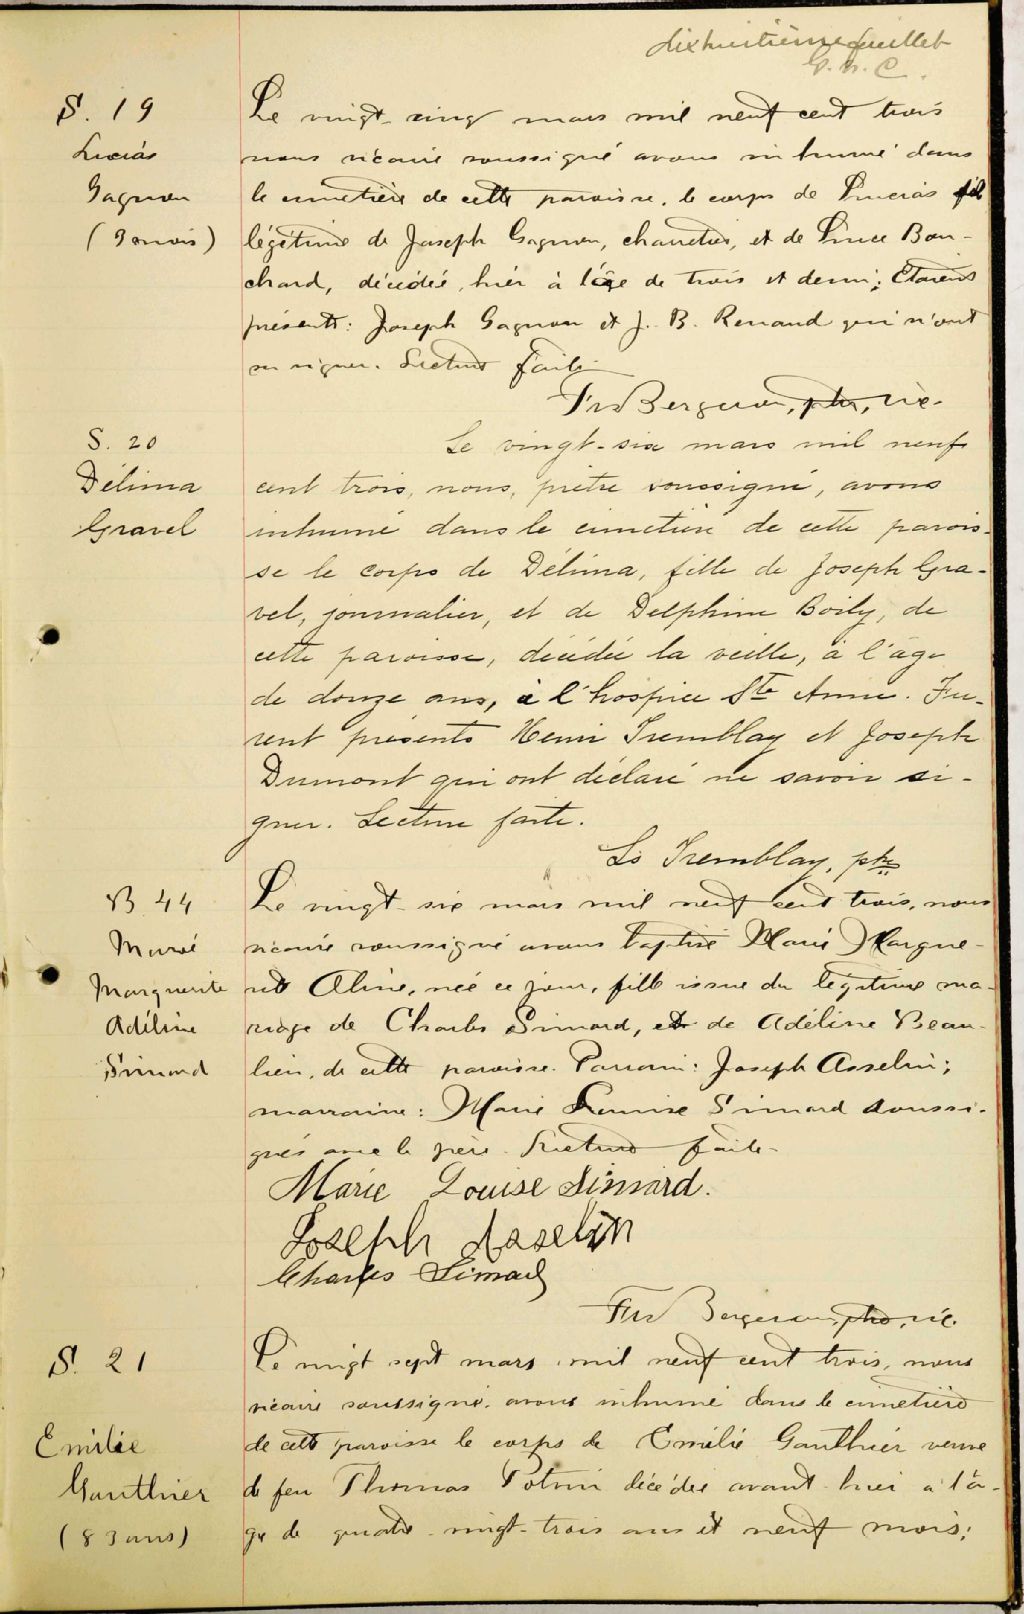 dixhuitième feuillet
S. 19
Lucias
Gagnon
(9 mois)
Le vingt-cinq mars mil neuf cent trois
nous vicaire soussigné avons inhumé dans
le cimetière de cette paroisse, le corps de Lucias fils
légitime de Joseph Gagnon, charretier, et de Bou-
chard, décédé, hier à l'âge de trois et demi; Etaient
présents: Joseph Gagnon et J. B. Renaud qui n'ont
su signer. Lecture faite
Bergeron, ptre, vic.
S. 20
Délima
Gravel
Le vingt-six mars mil neuf
cent trois, nous, prêtre soussigné, avons
inhumé dans le cimetière de cette parois-
se le corps de Délima, fille de Joseph Gra-
vel, journalier, et de Delphine Boily, de
cette paroisse, décédée la veille, à l'âge
de douze ans, à l'hospice Ste Anne. Fu-
rent présents Henri Tremblay et Joseph
Dumont qui ont déclaré ne savoir si-
gner. Lecture faite.
Ls Tremblay, ptre
B. 44
Marie
Marguerite
Adéline
Simard
Le vingt-six mars mil neuf cent trois, nous
vicaire soussigné avons baptisé Marie Margue-
rite Aline, née ce jour, fille issue du légitime ma-
riage de Charles Simard, et de Adéline Beau-
lieu, de cette paroisse. Parrain: Joseph Asselin;
marraine: Marie Louise Simard soussi-
gnés avec le père. Lecture faite.
Marie Louise Simard.
Joseph Asselin
Charles Simard
Bergeron, ptre, vic.
S. 21
Emilie
Gauthier
(83 ans)
Le vingt sept mars mil neuf cent trois, nous
vicaire soussigné, avons inhumé dans le cimetière
de cette paroisse le corps de Emilie Gauthier veuve
de feu Thomas Potvin décédée avant-hier à l'â-
ge de quatre-vingt-trois ans et neuf mois;